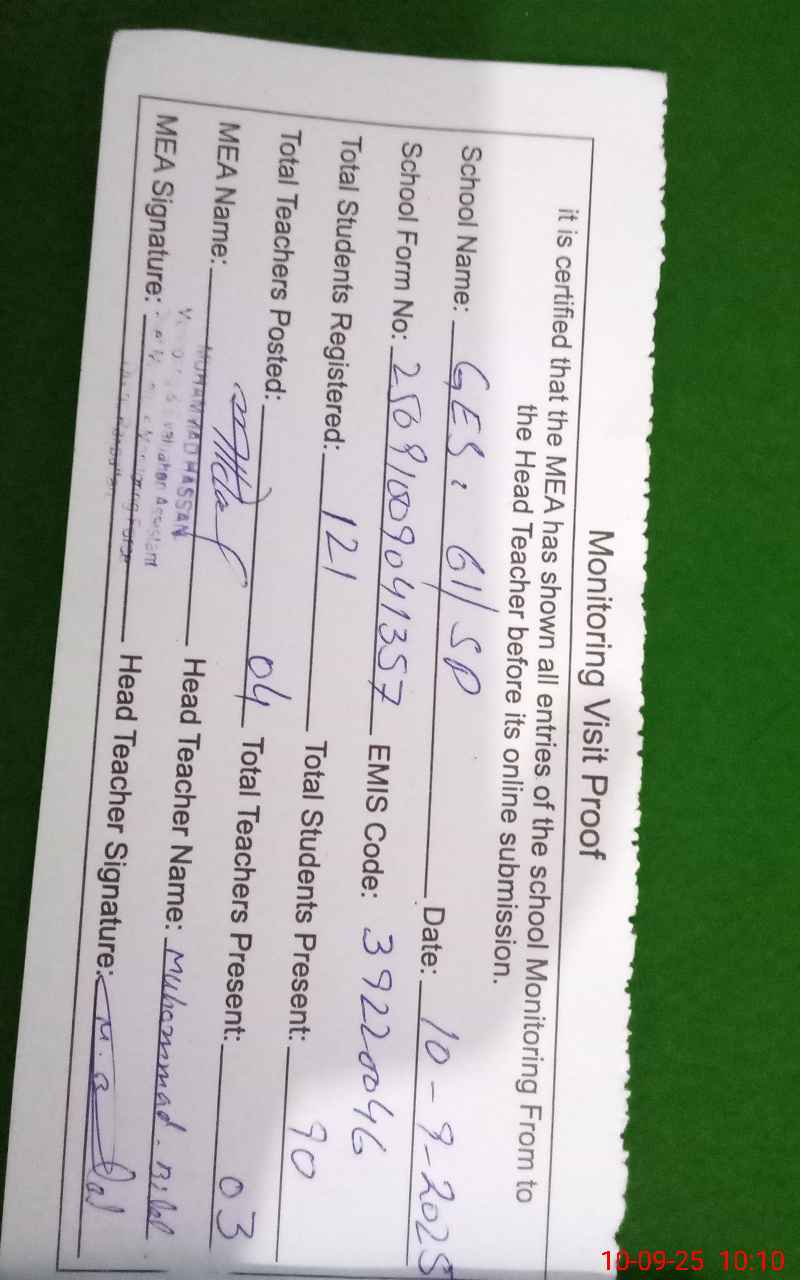 Monitoring Visit Proof
it is certified that the MEA has shown all entries of the school Monitoring From to
the Head Teacher before its online submission.
School Name: GES: 61/SP Date: 10-9-2025
School Form No: 25091009041357 EMIS Code: 39220046
Total Students Registered: 121 Total Students Present: 90
Total Teachers Posted: 04 Total Teachers Present: 03
MEA Name: MUHAMMAD HASSAN Head Teacher Name: Muhammad. Bilal
Evaluation Assistant
MEA Signature: Head Teacher Signature:
Monitoring Force
10-09-25 10:10